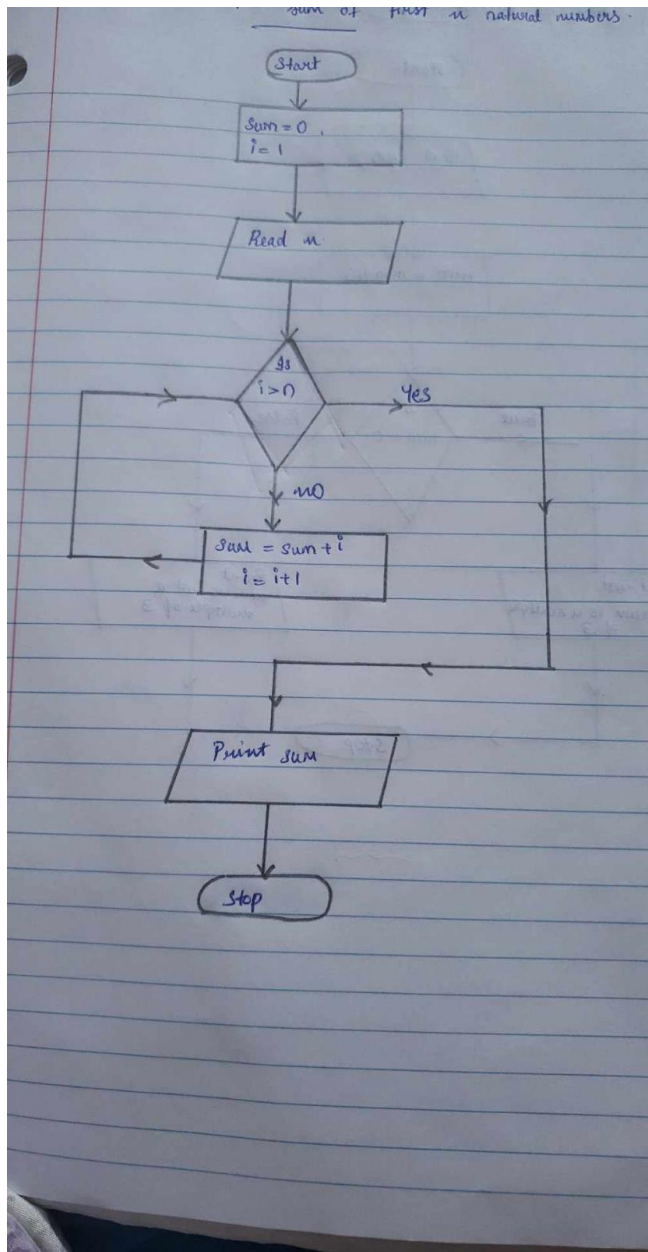 sum of first n natural numbers.
Start
Sum = 0.
i = 1
Read n
Is
i > n
Yes
no
sum = sum + i
i = i+1
Print sum
Stop